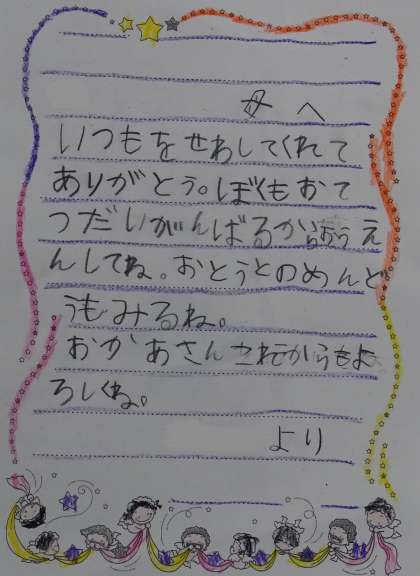 母へ
いつもをせわしてくれて
ありがとう。ぼくもおて
つだいがんばるからおうえ
んしてね。おとうとのめんど
うもみるね。
おかあさんこれからもよ
ろしくね。
より